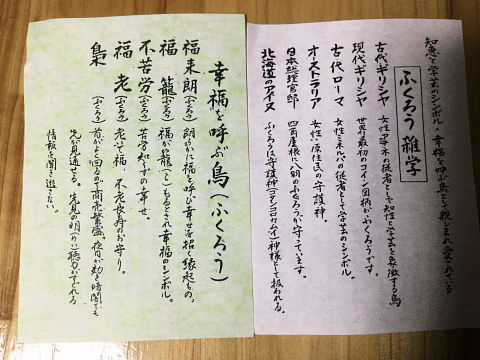 知恵と学芸のシンボル・幸福を呼ぶ鳥として親しまれ愛されている
ふくろう雑学
古代ギリシヤ 女性アテネの従者として知性と学芸を象徴する鳥
現代ギリシヤ 世界最初のコイン図柄がふくろうです。
古代ローマ 女性ミネルバの従者として学芸のシンボル。
オーストラリア 女性原住民の守護神。
日本総理官邸 四角屋根に八羽のふくろうが守っています。
北海道のアイヌ ふくろうは守護神(コタンコロカムイ)神様として扱われる。
幸福を呼ぶ鳥(ふくろう)
福来朗(ふくろう) 朗らかに福を呼び幸せを招く縁起もの。
福籠(ふくろう) 福が籠(こ)もるとされ幸福のシンボル。
不苦労(ふくろう) 苦労知らずの幸せ。
福老(ふくろう) 老いて福、不老長寿のお守り。
梟(ふくろう) 首がよく回るので商売繁盛、夜目が効き暗闇でも
先が見通せる。先見の明(めい)聴力がすぐれる
情報を聞き逃さない。